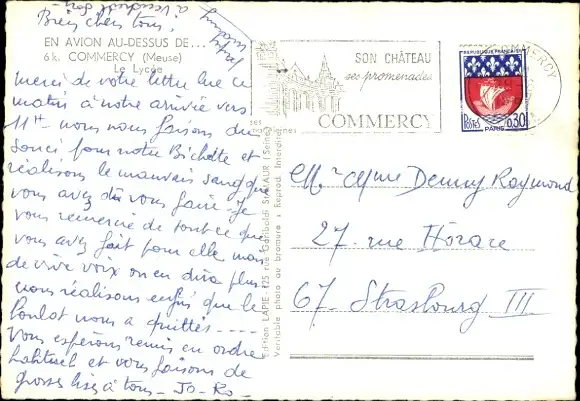 Bien chers tous,
EN AVION AU-DESSUS DE...
6 k. COMMERCY (Meuse)
Le Lycée
Merci de votre lettre lue ce
matin à notre arrivée vers
11H - nous nous faisons du
souci pour notre Bichette et
réalisons le mauvais sang que
vous avez dû vous faire - Je
vous remercie de tout ce que
vous avez fait pour elle mais
de vive voix on en dira plus
nous réalisons enfin que le
Loulot nous a quittés ----
Vous espérons remis en ordre
habituel et vous faisons de
grosses bises à tous - Jo - Ro -
à
Edition LAPIE - 125 rue Garibaldi St-MAUR (Seine)
Véritable photo au bromure - Reprod. Interdite
SON CHÂTEAU
ses promenades
COMMERCY
COMMERCY
REPUBLIQUE FRANCAISE
POSTES 0,30
PARIS
Mr et Mme Denny Raymond
27 - rue Horace
67 - Strasbourg III